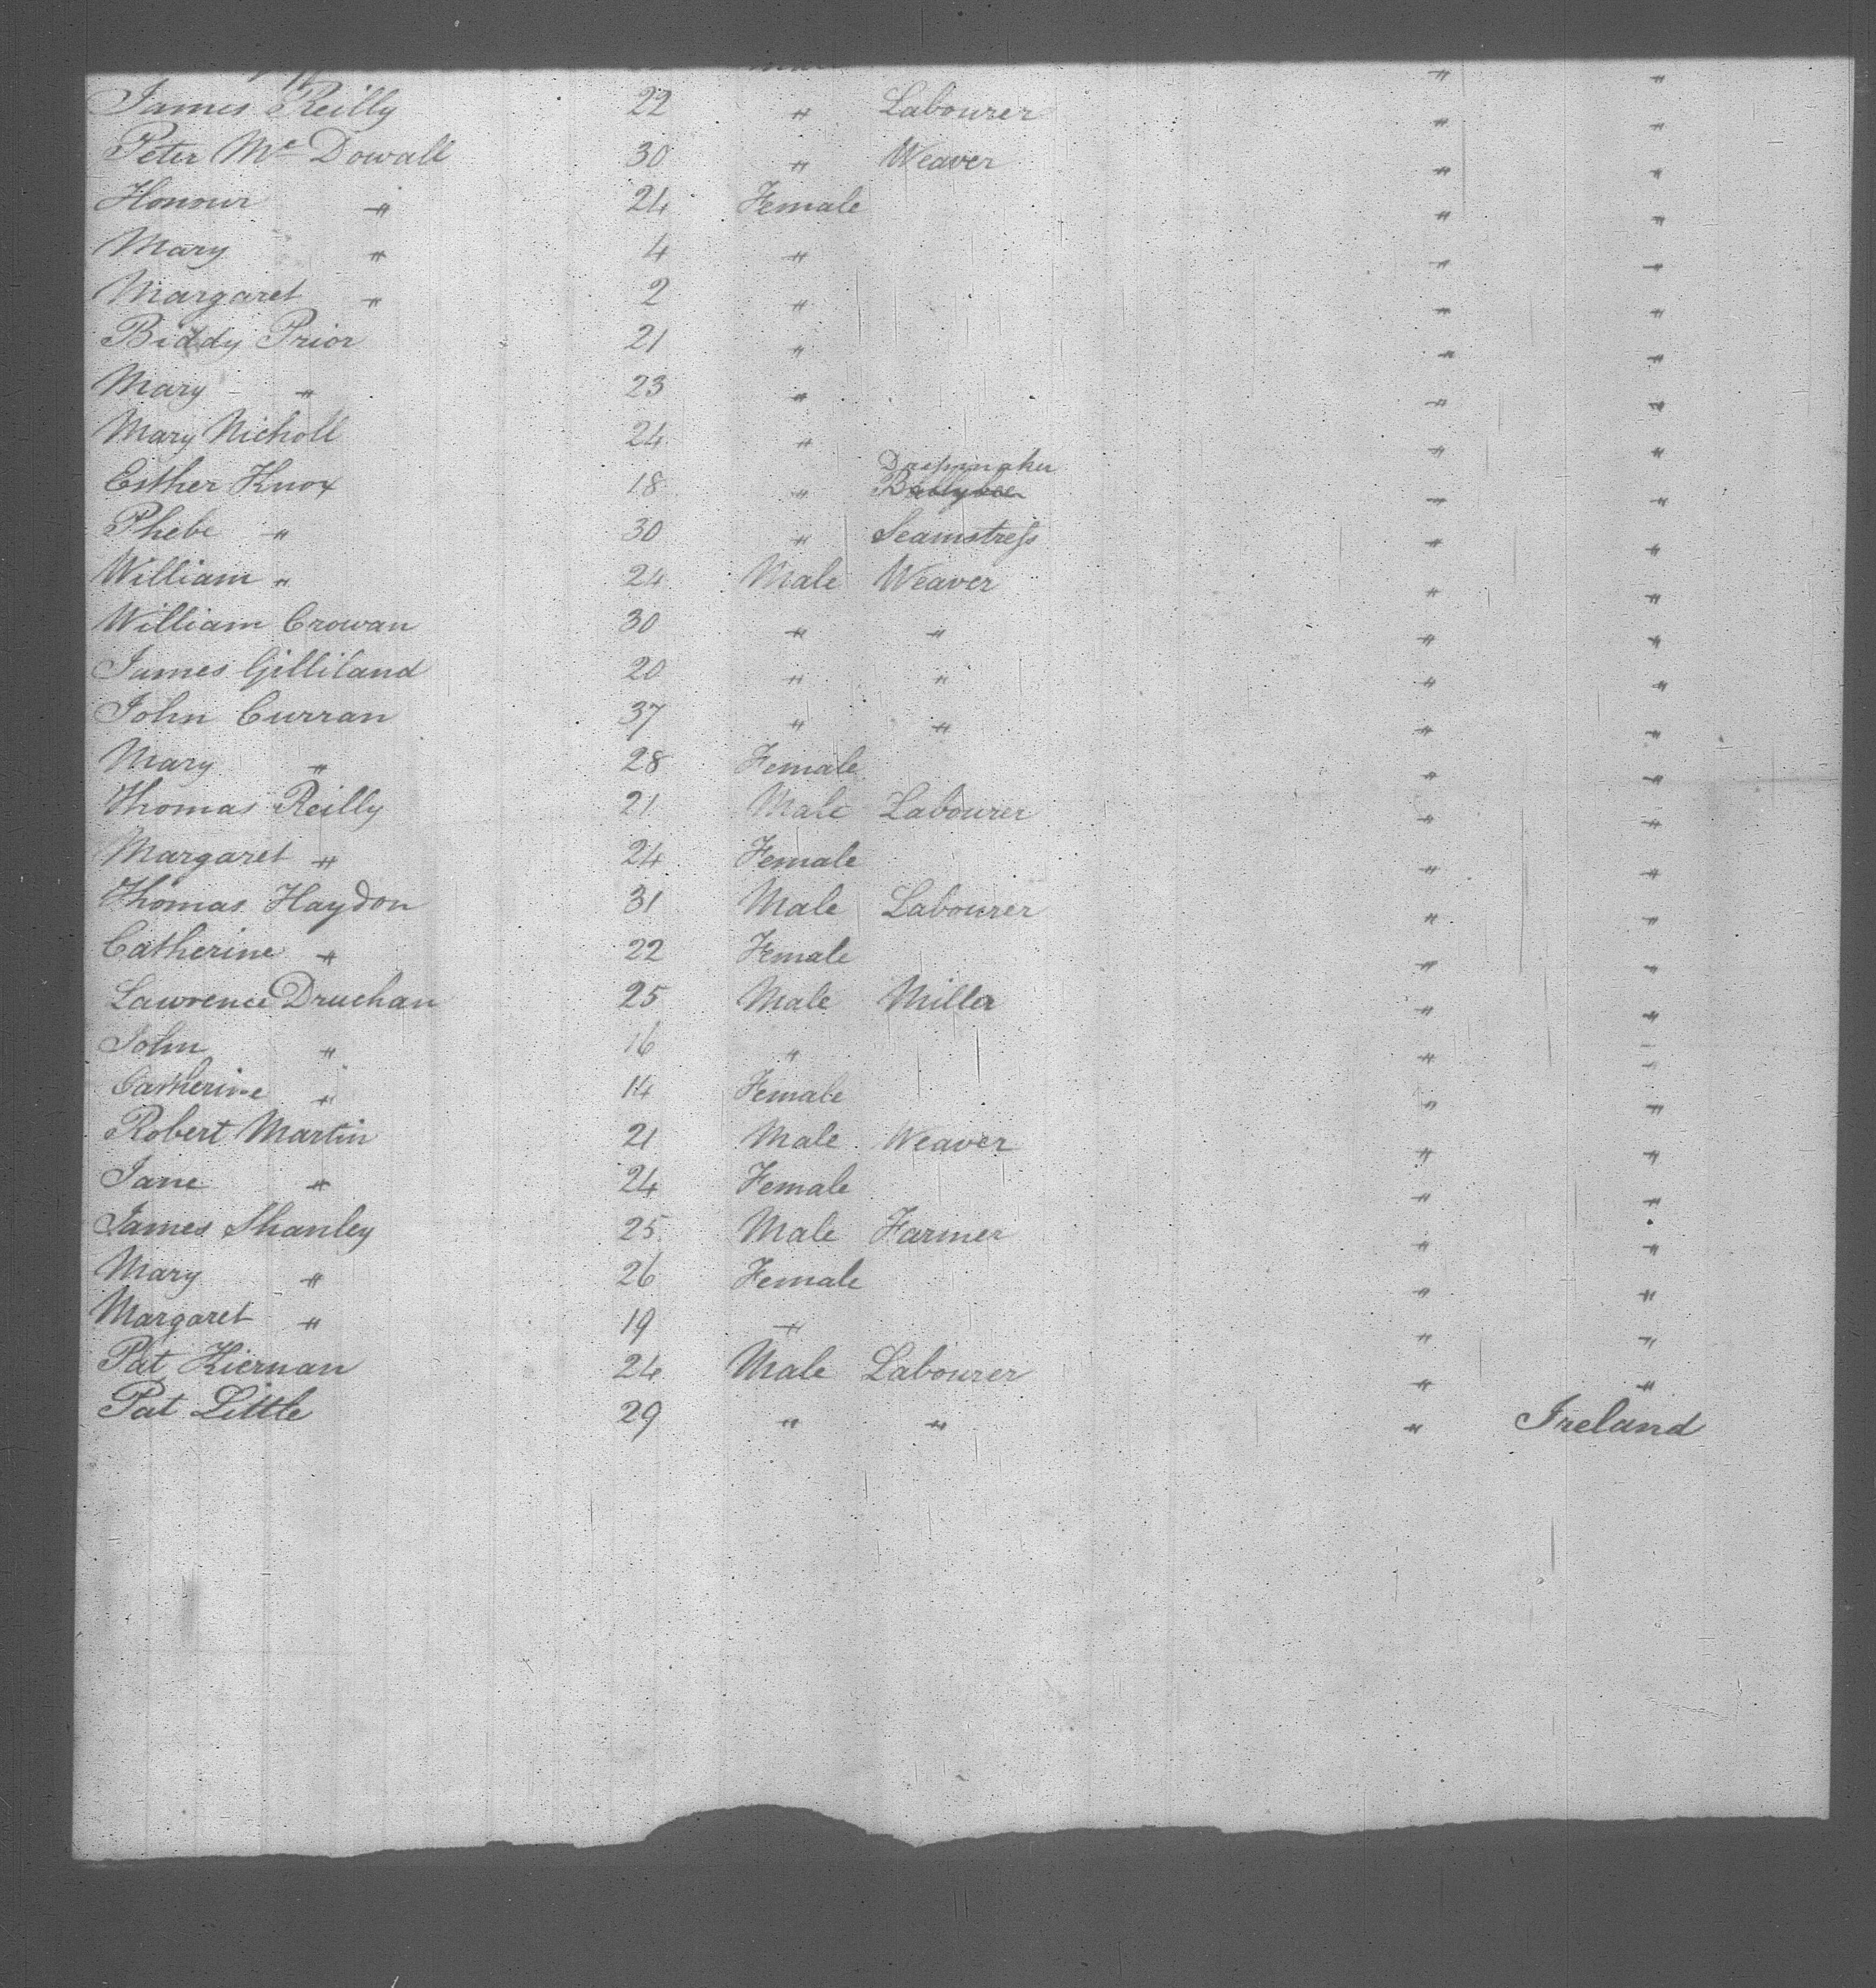 James Reilly 22 " Labourer " "
Peter Mc Dowall 30 " Weaver " "
Honour " 24 Female " "
Mary " 4 " " "
Margaret " 2 " " "
Biddy Prior 21 " " "
Mary " 23 " " "
Mary Nicholl 24 " " "
Dressmaker
Esther Knox 18 " " "
Phebe " 30 " Seamstress " "
William " 24 Male Weaver " "
William Crowan 30 " " " "
James Gilliland 20 " " " "
John Curran 37 " " " "
Mary " 28 Female " "
Thomas Reilly 21 Male Labourer " "
Margaret " 24 Female " "
Thomas Haydon 31 Male Labourer " "
Catherine " 22 Female " "
Lawrence Druchan 25 Male Miller " "
John " 16 " " "
Catherine " 14 Female " "
Robert Martin 21 Male Weaver " "
Jane " 24 Female " "
James Shanley 25 Male Farmer " "
Mary " 26 Female " "
Margaret " 19 " " "
Pat Kiernan 24 Male Labourer " "
Pat Little 29 " " " Ireland